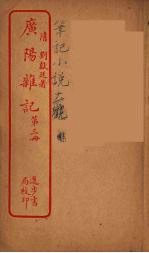 清 劉獻廷著
廣陽雜記 第三冊
進步書
局校印
筆記小說大觀